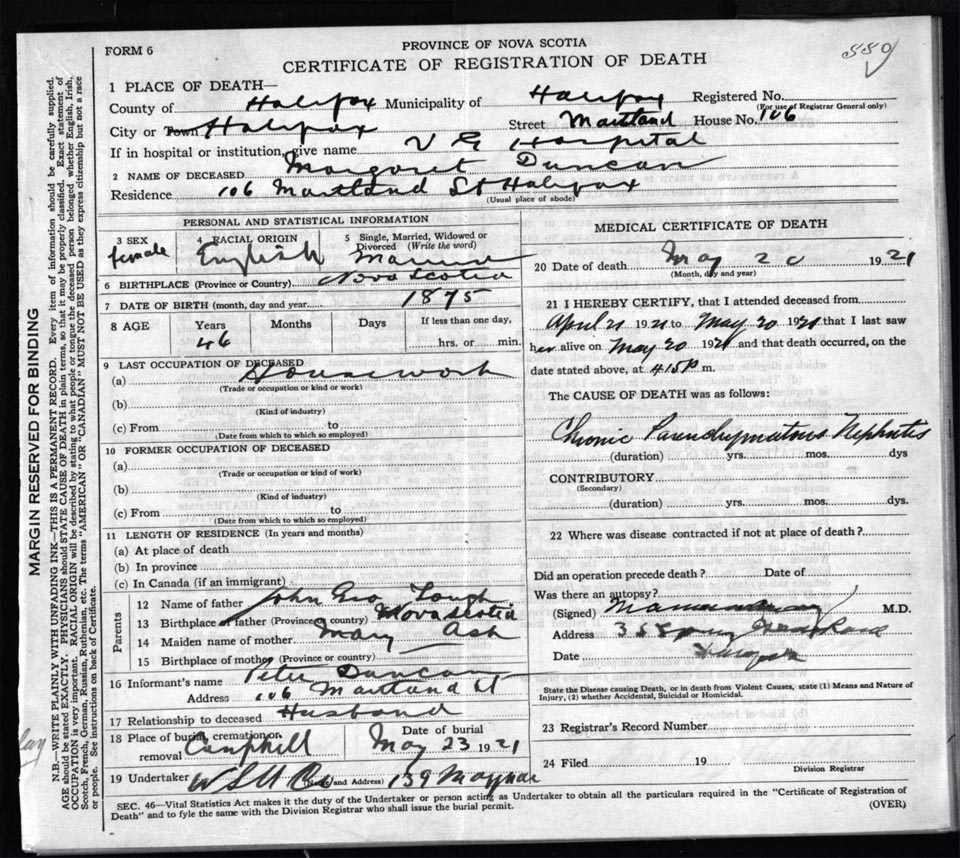 FORM 6
PROVINCE OF NOVA SCOTIA
550
CERTIFICATE OF REGISTRATION OF DEATH
1 PLACE OF DEATH—
County of Halifax Municipality of Halifax Registered No.
(For use of Registrar General only)
City or Town Halifax Street Maitland House No. 106
If in hospital or institution, give name V G Hospital
2 NAME OF DECEASED Margaret Duncan
Residence 106 Maitland St Halifax
(Usual place of abode)
PERSONAL AND STATISTICAL INFORMATION
3 SEX female
4 RACIAL ORIGIN English
5 Single, Married, Widowed or Divorced (Write the word) Married
6 BIRTHPLACE (Province or Country) Nova Scotia
7 DATE OF BIRTH (month, day and year) 1875
8 AGE Years Months Days If less than one day,
46 hrs. or min.
9 LAST OCCUPATION OF DECEASED
(a) Housework
(Trade or occupation or kind or work)
(b)
(Kind of industry)
(c) From to
(Date from which to which so employed)
10 FORMER OCCUPATION OF DECEASED
(a)
(Trade or occupation or kind or work)
(b)
(Kind of industry)
(c) From to
(Date from which to which so employed)
11 LENGTH OF RESIDENCE (In years and months)
(a) At place of death
(b) In province
(c) In Canada (if an immigrant)
Parents
12 Name of father John Geo
13 Birthplace of father (Province or country) Nova Scotia
14 Maiden name of mother Mary Ash
15 Birthplace of mother (Province or country)
16 Informant's name Peter Duncan
Address 106 Maitland St
17 Relationship to deceased Husband
18 Place of burial, cremation or removal
Date of burial
May 23 1921
19 Undertaker (Name and Address) 139 Maynard
MEDICAL CERTIFICATE OF DEATH
20 Date of death May 20 1921
(Month, day and year)
21 I HEREBY CERTIFY, that I attended deceased from
April 21 1921 to May 20 1921 that I last saw
her alive on May 20 1921 and that death occurred, on the
date stated above, at 4.15 P m.
The CAUSE OF DEATH was as follows:
Chronic Parenchymatous Nephritis
(duration) yrs. mos. dys
CONTRIBUTORY
(Secondary)
(duration) yrs. mos. dys.
22 Where was disease contracted if not at place of death?
Did an operation precede death? Date of
Was there an autopsy?
(Signed) M.D.
Address
Date
State the Disease causing Death, or in death from Violent Causes, state (1) Means and Nature of
Injury, (2) whether Accidental, Suicidal or Homicidal.
23 Registrar's Record Number
24 Filed 19
Division Registrar
SEC. 46—Vital Statistics Act makes it the duty of the Undertaker or person acting as Undertaker to obtain all the particulars required in the "Certificate of Registration of
Death" and to fyle the same with the Division Registrar who shall issue the burial permit.
(OVER)
MARGIN RESERVED FOR BINDING
N.B.—WRITE PLAINLY WITH UNFADING INK—THIS IS A PERMANENT RECORD. Every item of information should be carefully supplied.
AGE should be stated EXACTLY. PHYSICIANS should STATE CAUSE OF DEATH in plain terms, so that it may be properly classified. Exact statement of
OCCUPATION is very important. RACIAL ORIGIN will be described by stating to what people or tongue the deceased person belonged whether English, Irish,
Scotch, French, German, Russian, Ruthenian, etc. The terms "AMERICAN" OR "CANADIAN" MUST NOT BE USED as they express citizenship but not a race
or people. See instructions on back of Certificate.